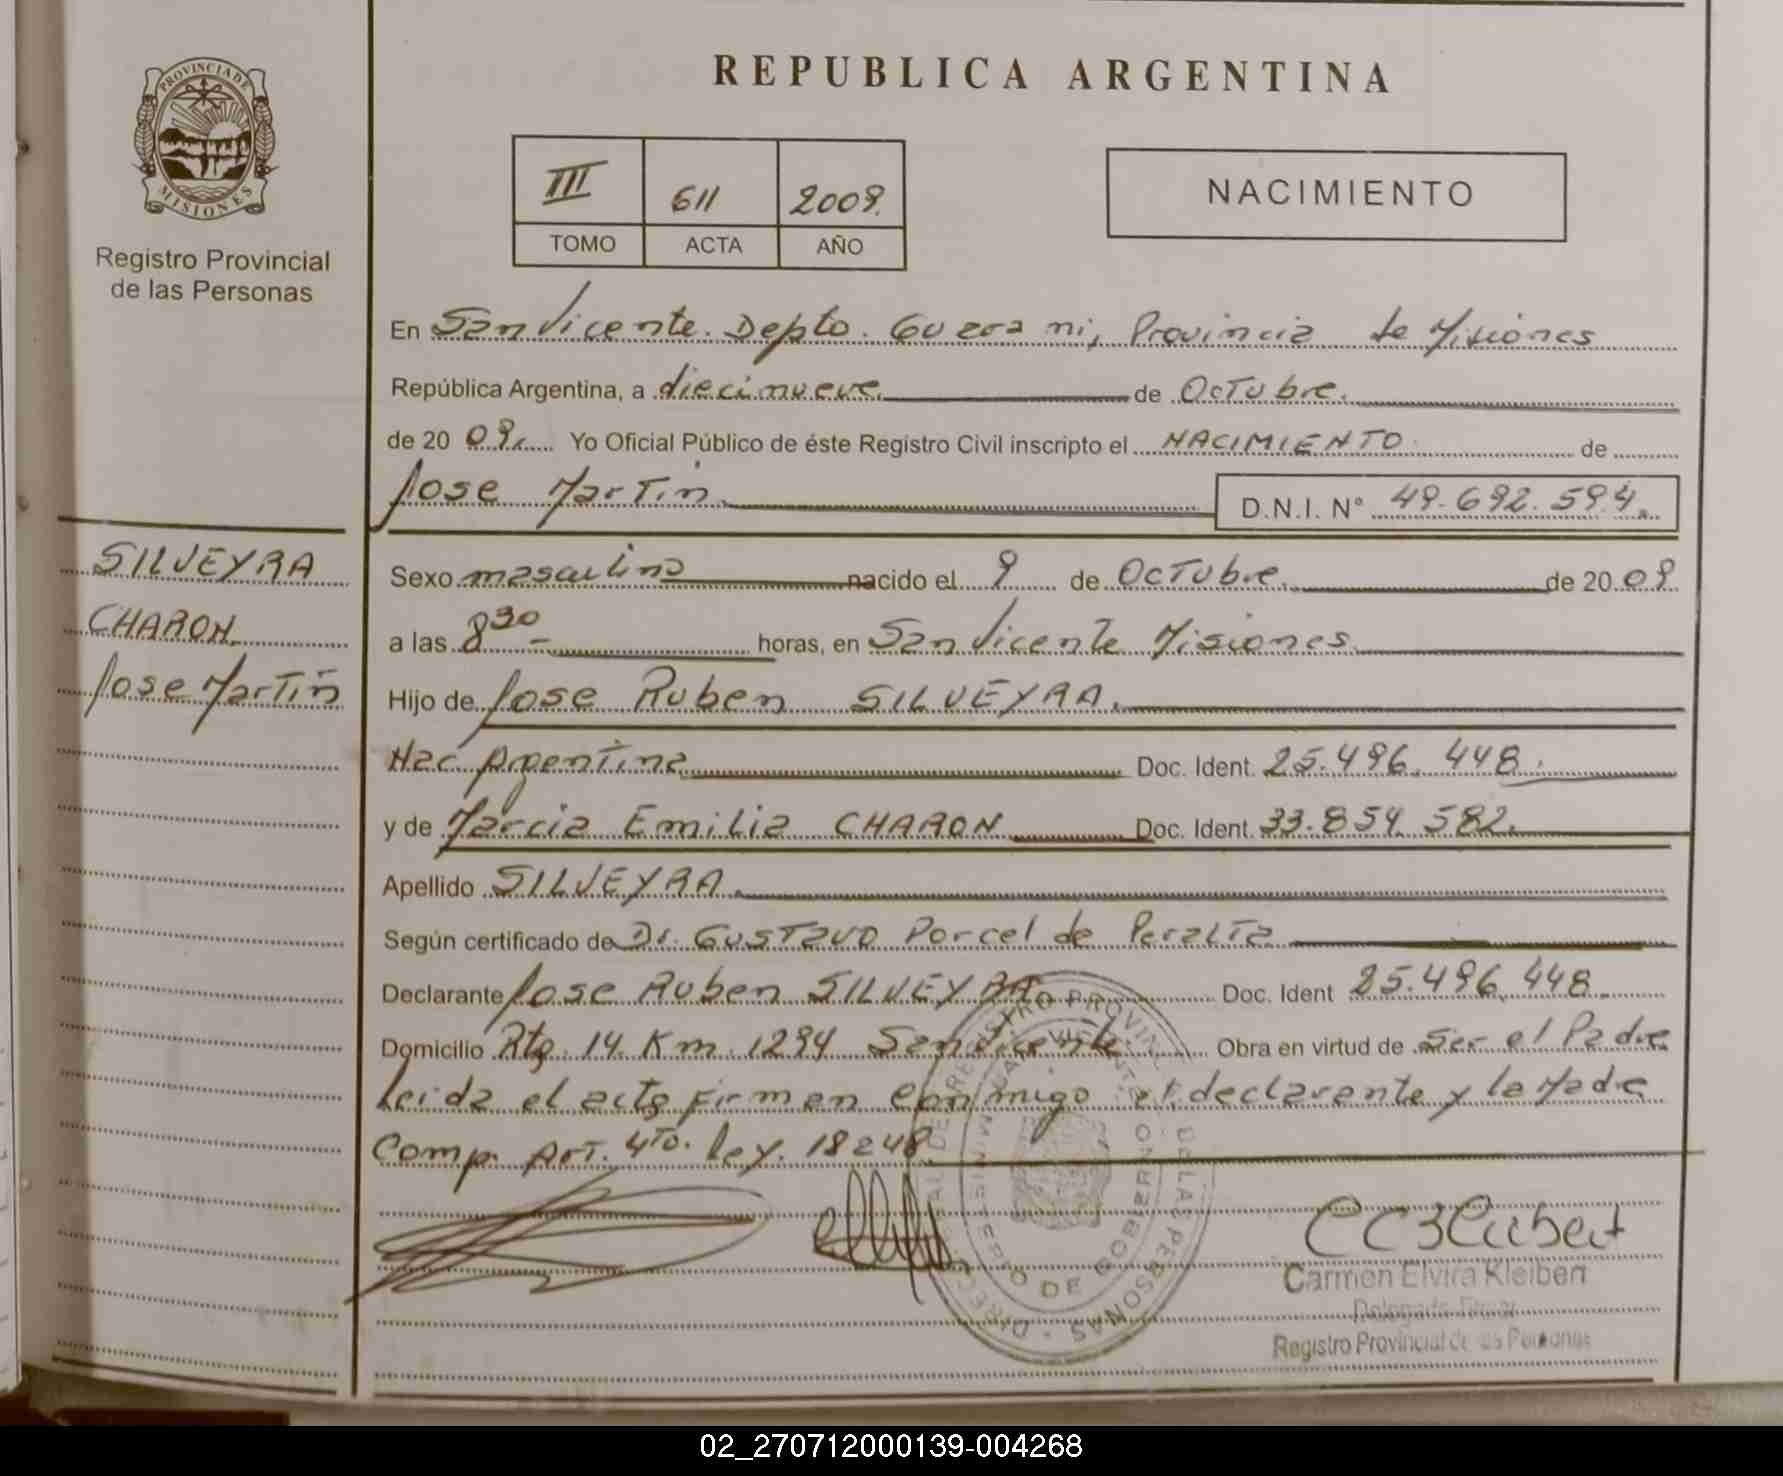 PROVINCIA DE
MISIONES
Registro Provincial
de las Personas
REPUBLICA ARGENTINA
III 611 2009.
TOMO ACTA AÑO
NACIMIENTO
En San Vicente. Depto. Guarani, Provincia de Misiones
República Argentina, a diecinueve. de Octubre.
de 20 09. Yo Oficial Público de éste Registro Civil inscripto el NACIMIENTO de
Jose Martin. D.N.I. N° 49.692.594.
SILVEYRA
CHARON.
Jose Martin
Sexo masculino nacido el 9 de Octubre. de 20 09
a las 8 30 horas, en San Vicente Misiones.
Hijo de Jose Ruben SILVEYRA.
Nac Argentina Doc. Ident. 25.496.448.
y de Marcia Emilia CHARON Doc. Ident. 33.854.582.
Apellido SILVEYRA.
Según certificado de Dr. Gustavo Porcel de Peralta
Declarante Jose Ruben SILVEYRA Doc. Ident 25.496.448.
Domicilio Rta. 14 Km. 1294 San Vicente Obra en virtud de Ser el Padre
Leida el acta firman conmigo el declarante y la Madre
Comp. Art. 4to. Ley. 18248.
Carmen Elvira Kleibert
Delegada Titular
Registro Provincial de las Personas
02_270712000139-004268